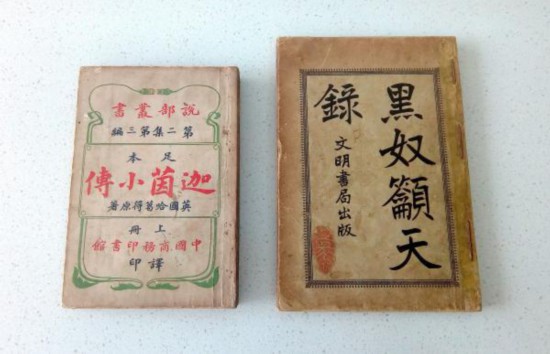 說部叢書
第二集第三編
足本
迦茵小傳
英國哈葛得原著
上冊
中國商務印書館
譯印
黑奴籲天
錄
文明書局出版